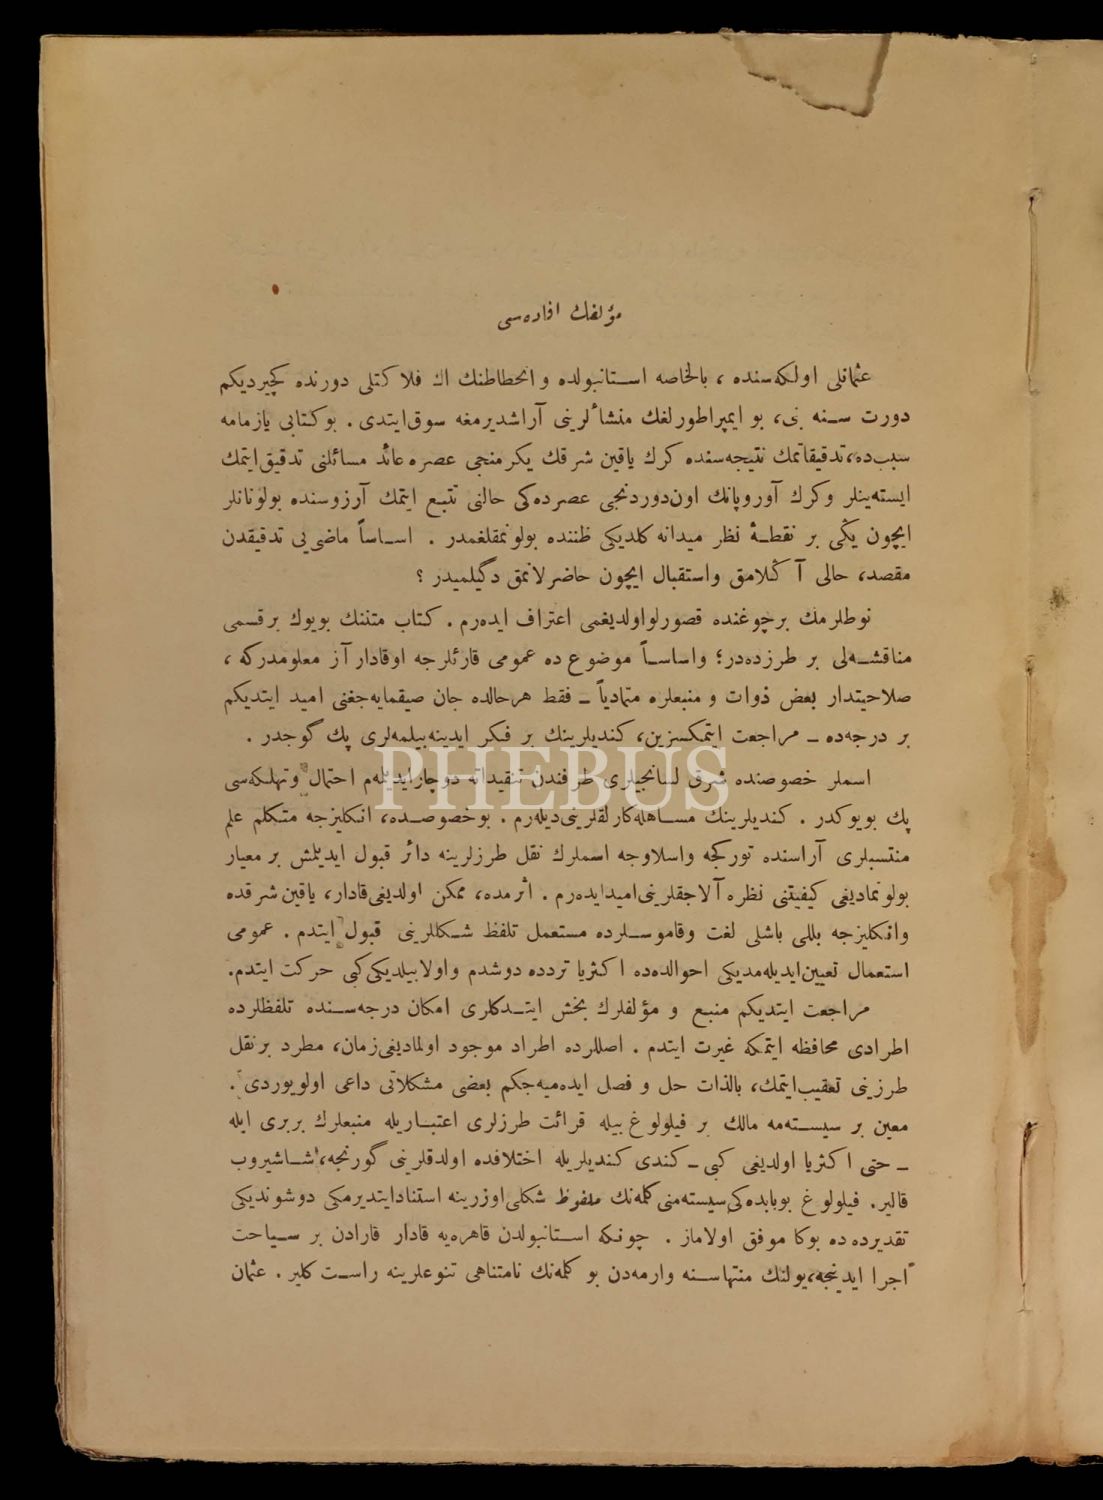 مؤلفك افاده‌سى
عثمانلى اولكه‌سنده ، بالخاصه استانبولده و انحطاطنك اك فلاكتلى دورنده كچيرديكم
دورت سنه بنى، بو ايمپراطورلغك منشأ لرينى آراشديرمغه سوق ايتدى . بو كتابى يازمامه
سبب ده، تدقيقاتمك نتيجه‌سنده كرك ياقين شرقك يكرمنجى عصره عائد مسائلنى تدقيق ايتمك
ايسته‌ينلر و كرك آوروپانك اون دوردنجى عصرده‌كى حالنى تتبع ايتمك آرزوسنده بولونانلر
ايچون يڭى بر نقطهٔ نظر ميدانه كلديكى ظننده بولونمقلغمدر . اساساً ماضى يى تدقيقدن
مقصد، حالى آ ڭلامق واستقبال ايچون حاضرلانمق دگيلميدر ؟
نوطلرمك بر چوغنده قصورلو اولديغمى اعتراف ايده‌رم . كتاب متننك بويوك بر قسمى
مناقشه‌لى بر طرزده‌در؛ واساساً موضوع ده عمومى قارئلرجه اوقادار آز معلومدركه ،
صلاحيتدار بعض ذوات و منبعلره متمادياً ـ فقط هر حالده جان صيقمايه‌جغنى اميد ايتديكم
بر درجه‌ده ـ مراجعت ايتمكسزين، كنديلرينك بر فكر ايدينه‌بيلمه‌لرى پك گوجدر .
PHEBUS
اسملر خصوصنده شرق لسانجيلرى طرفندن تنقيداته دوچار ايديلمه‌م احتمال و تهلكه‌سى
پك بويوكدر . كنديلرينك مساهله‌كارلقلرينى ديله‌رم . بو خصوصده، انكليزجه متكلم علم
منتسبلرى آراسنده توركجه واسلاوجه اسملرك نقل طرزلرينه دائر قبول ايديلمش بر معيار
بولونماديغى كيفيتنى نظره آلاجقلرينى اميد ايده‌رم . اثرمده، ممكن اولديغى قادار، ياقين شرقده
وانكليزجه بللى باشلى لغت وقاموسلرده مستعمل تلفظ شكللرينى قبول ايتدم . عمومى
استعمال تعيين ايديله‌مديكى احوالده‌ده اكثريا تردده دوشدم و اولابيلديكى كبى حركت ايتدم.
مراجعت ايتديكم منبع و مؤلفلرك بخش ايتدكلرى امكان درجه‌سنده تلفظلرده
اطرادى محافظه ايتمكه غيرت ايتدم . اصللرده اطراد موجود اولماديغى زمان، مطرد بر نقل
طرزينى تعقيب ايتمك، بالذات حل و فصل ايده‌ميه‌جكم بعضى مشكلاتى داعى اولويوردى .
معين بر سيسته‌مه مالك بر فيلولوغ بيله قرائت طرزلرى اعتباريله منبعلرك بربرى ايله
ـ حتى اكثريا اولديغى كبى ـ كندى كنديلريله اختلافده اولدقلرينى گورنجه، شاشيروب
قالير. فيلولوغ بوبابده‌كى سيسته‌منى كلمه‌نك ملفوظ شكلى اوزرينه استناد ايتديرمكى دوشونديكى
تقديرده ده بوكا موفق اولاماز . چونكه استانبولدن قاهره‌يه قادار قارادن بر سياحت
اجرا ايدينجه، يولنك منتهاسنه وارمه‌دن بو كلمه‌نك نامتناهى تنوعلرينه راست كلير . عثمان